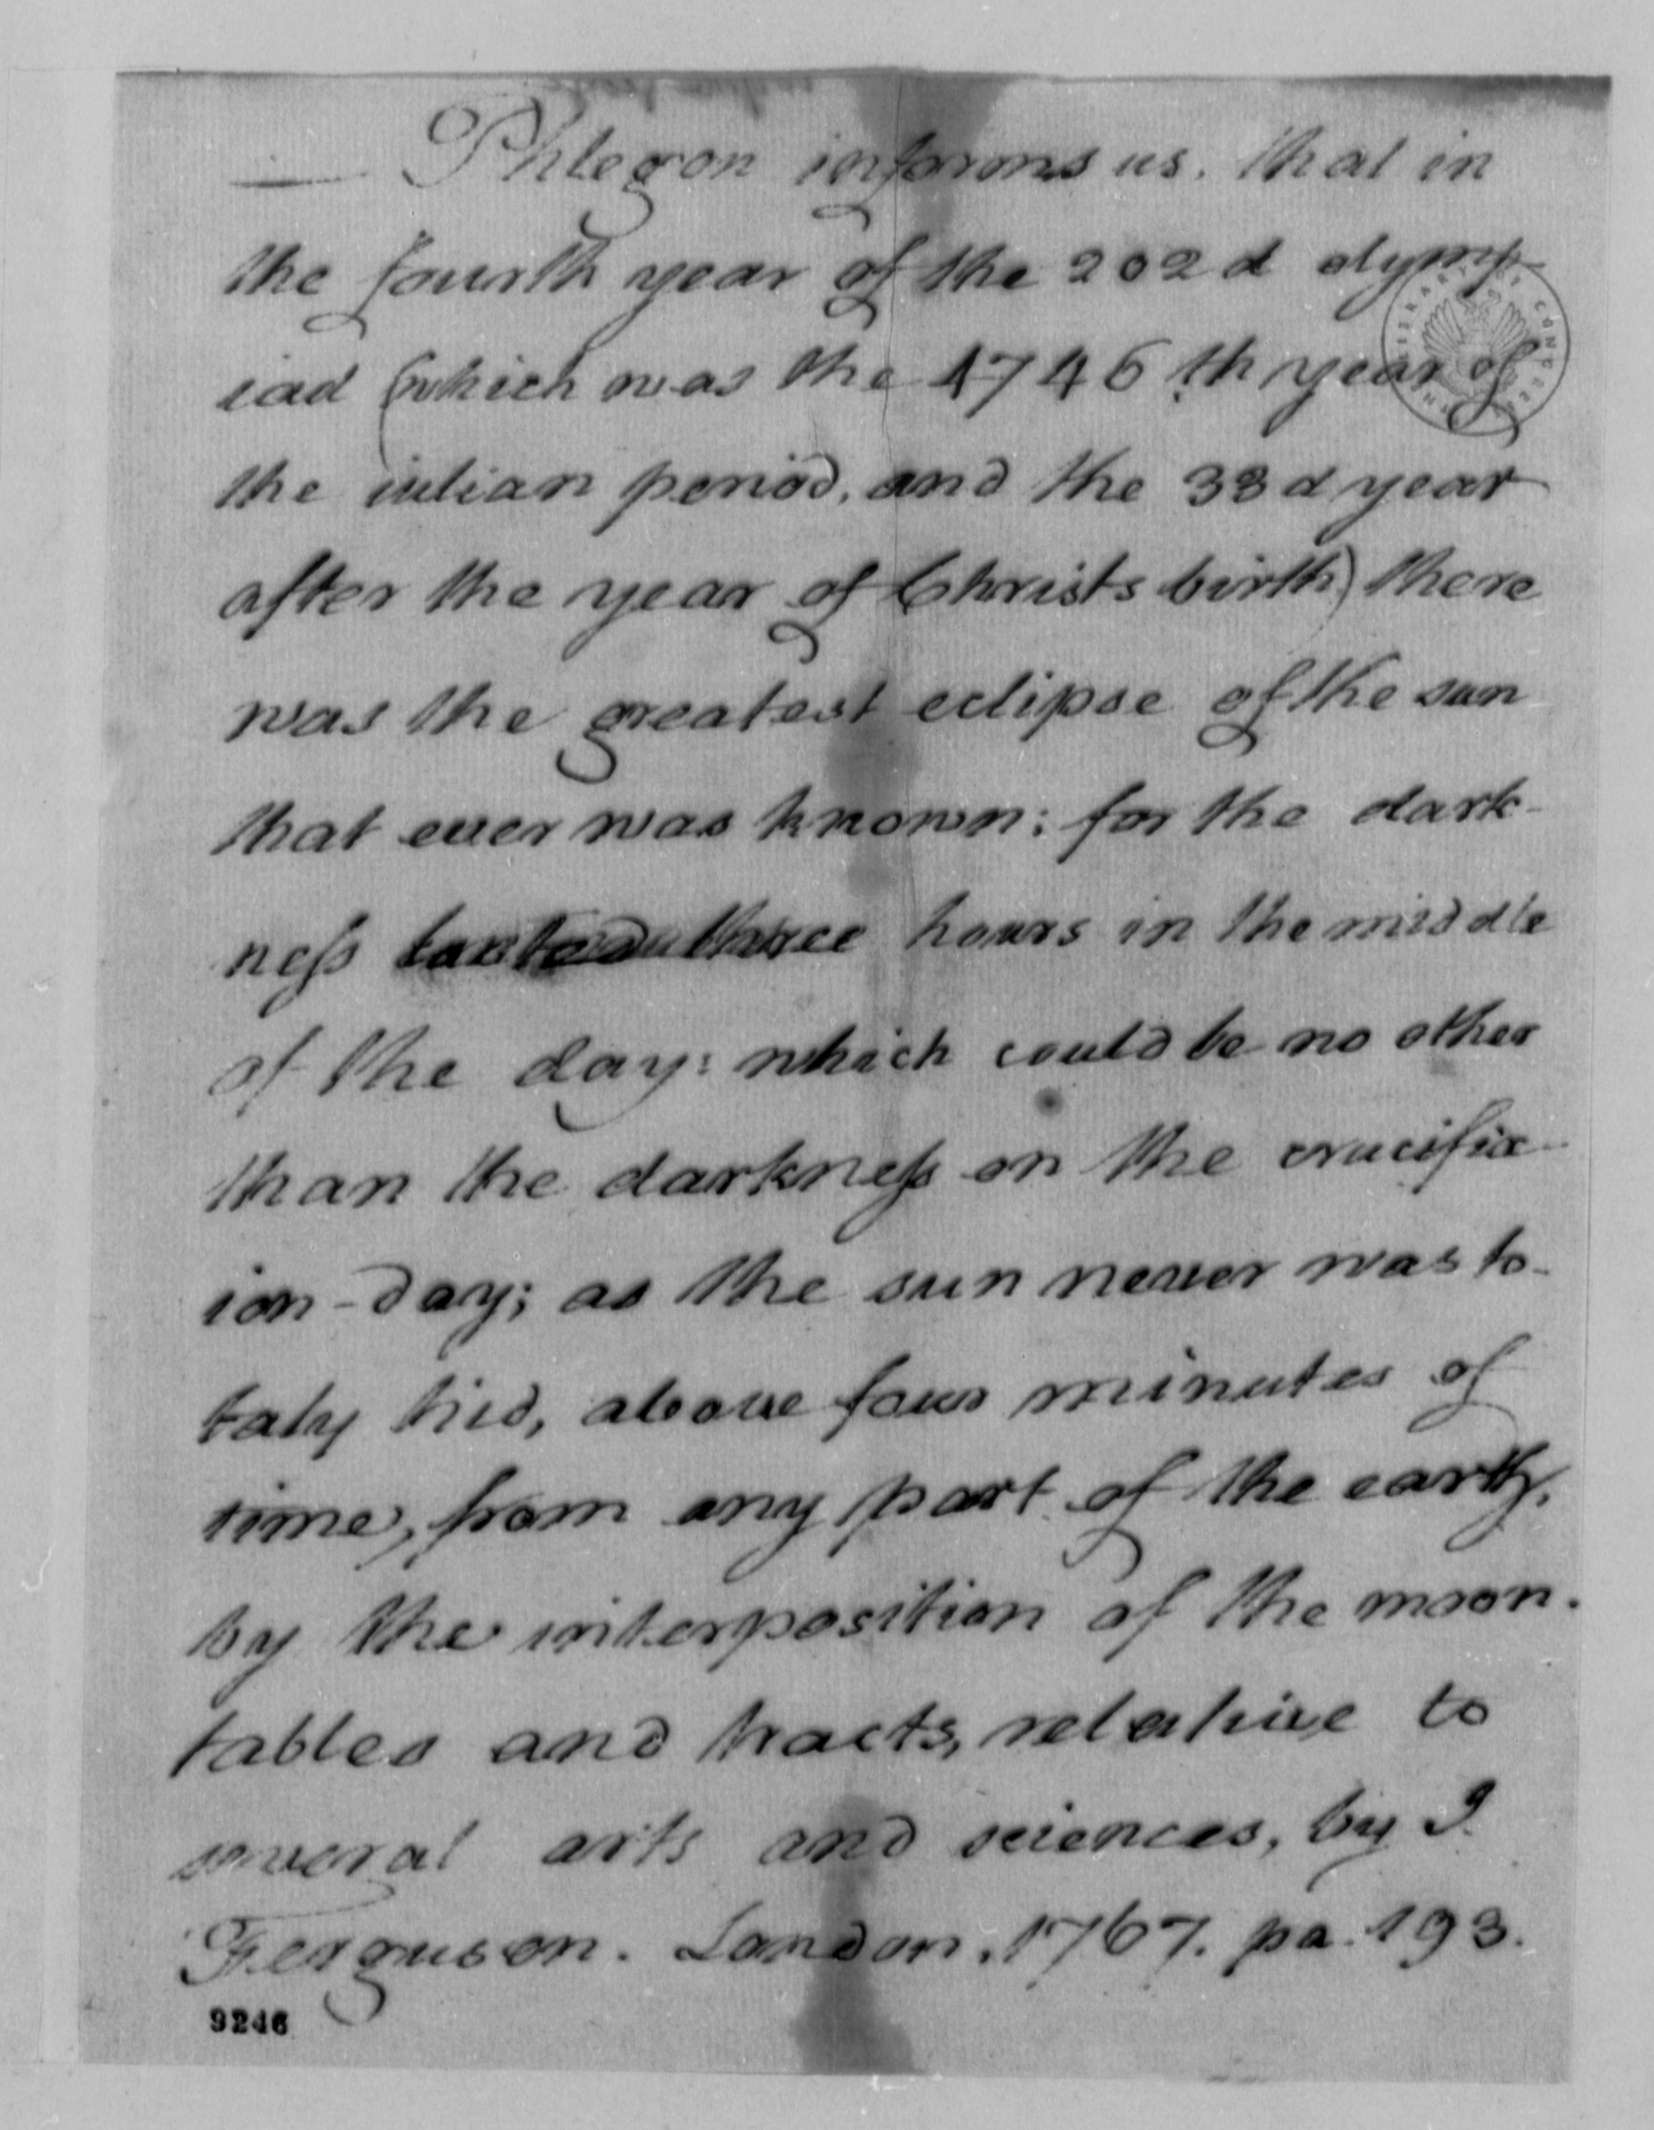 — Phlegon informs us. that in
the fourth year of the 202d olymp-
iad (which was the 4746th year of
the iulian period, and the 33d year
after the year of Christs birth) there
was the greatest eclipse of the sun
that ever was known; for the dark-
ness lasted three hours in the middle
of the day: which could be no other
than the darkness on the crucifix-
ion-day; as the sun never was to-
taly hid, above four minutes of
time, from any part of the earth,
by the interposition of the moon.
tables and tracts, relative to
several arts and sciences, by I
Ferguson. London. 1767. pa. 193.
9246